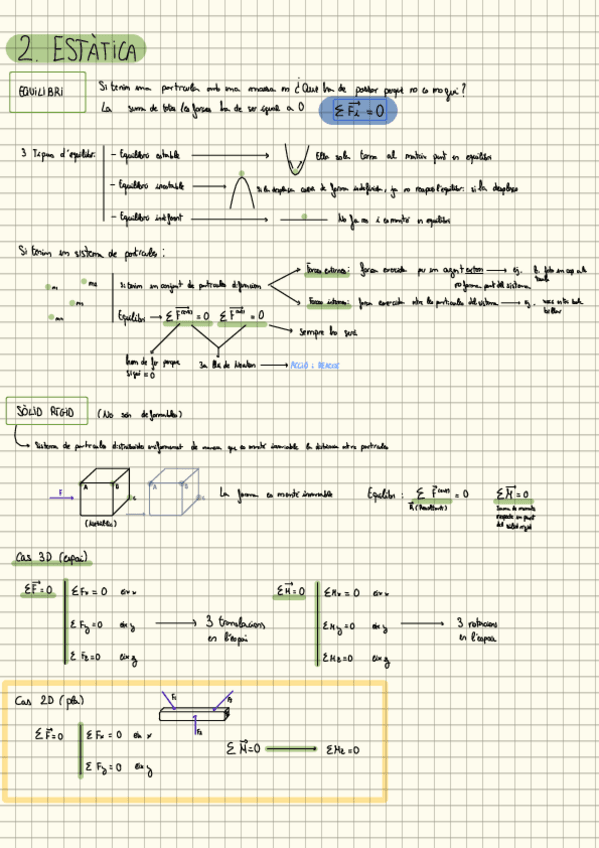 2. ESTÀTICA
EQUILIBRI
Si tenim una partícula amb una massa m ¿Què ha de passar perquè no es mogui?
La suma de totes les forces ha de ser igual a 0 ΣFi = 0
3 Tipus d'equilibri:
- Equilibri estable → Ella sola torna al mateix punt en equilibri
- Equilibri inestable →
- Equilibri indiferent → No fa res i es manté en equilibri
Si tenim un sistema de partícules:
m₁ m₂
Si tenim un conjunt de partícules diferenciem
Forces externes: forces exercides per un agent extern → ej.
no forma part del sistema
Forces internes: forces exercides entre les partícules del sistema → ej.
Equilibri → ΣF(ext) = 0 ΣF(int) = 0
→ sempre ho serà
hem de fer perquè
sigui = 0
3a llei de Newton → ACCIÓ i REACCIÓ
SÒLID RÍGID (No són deformables)
Sistema de partícules distribuïdes uniformement de manera que es manté invariable la distància entre partícules
F A B C A B C
La forma es manté invariable
Equilibri: ΣF(ext) = 0 ΣM = 0
R (Resultant)
Suma de moments
respecte un punt
del sòlid rígid
Cas 3D (espai)
ΣF = 0 ΣFx = 0 eix x
ΣFy = 0 eix y → 3 translacions
en l'espai
ΣFz = 0 eix z
ΣM = 0 ΣMx = 0 eix x
ΣMy = 0 eix y → 3 rotacions
en l'espai
ΣMz = 0 eix z
Cas 2D (pla)
F₁ F₂ F₃
ΣF = 0 ΣFx = 0 eix x
ΣFy = 0 eix y
ΣM = 0 → ΣMz = 0